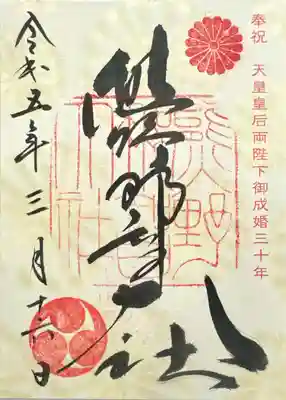 奉祝 天皇皇后両陛下御成婚三十年
熊野
令和五年三月十六日
熊野